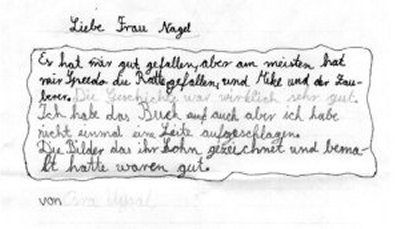 Liebe Frau Nagel
Es hat mir gut gefallen, aber am meisten hat
mir Greeda die Ratte gefallen, und Mike und der Zau-
berer. Die Geschichte war wirklich sehr gut.
Ich habe das Buch auf auch aber ich habe
nicht einmal eine Seite aufgeschlagen.
Die Bilder das ihr Sohn gezeichnet und bema-
lt hatte waren gut.
von